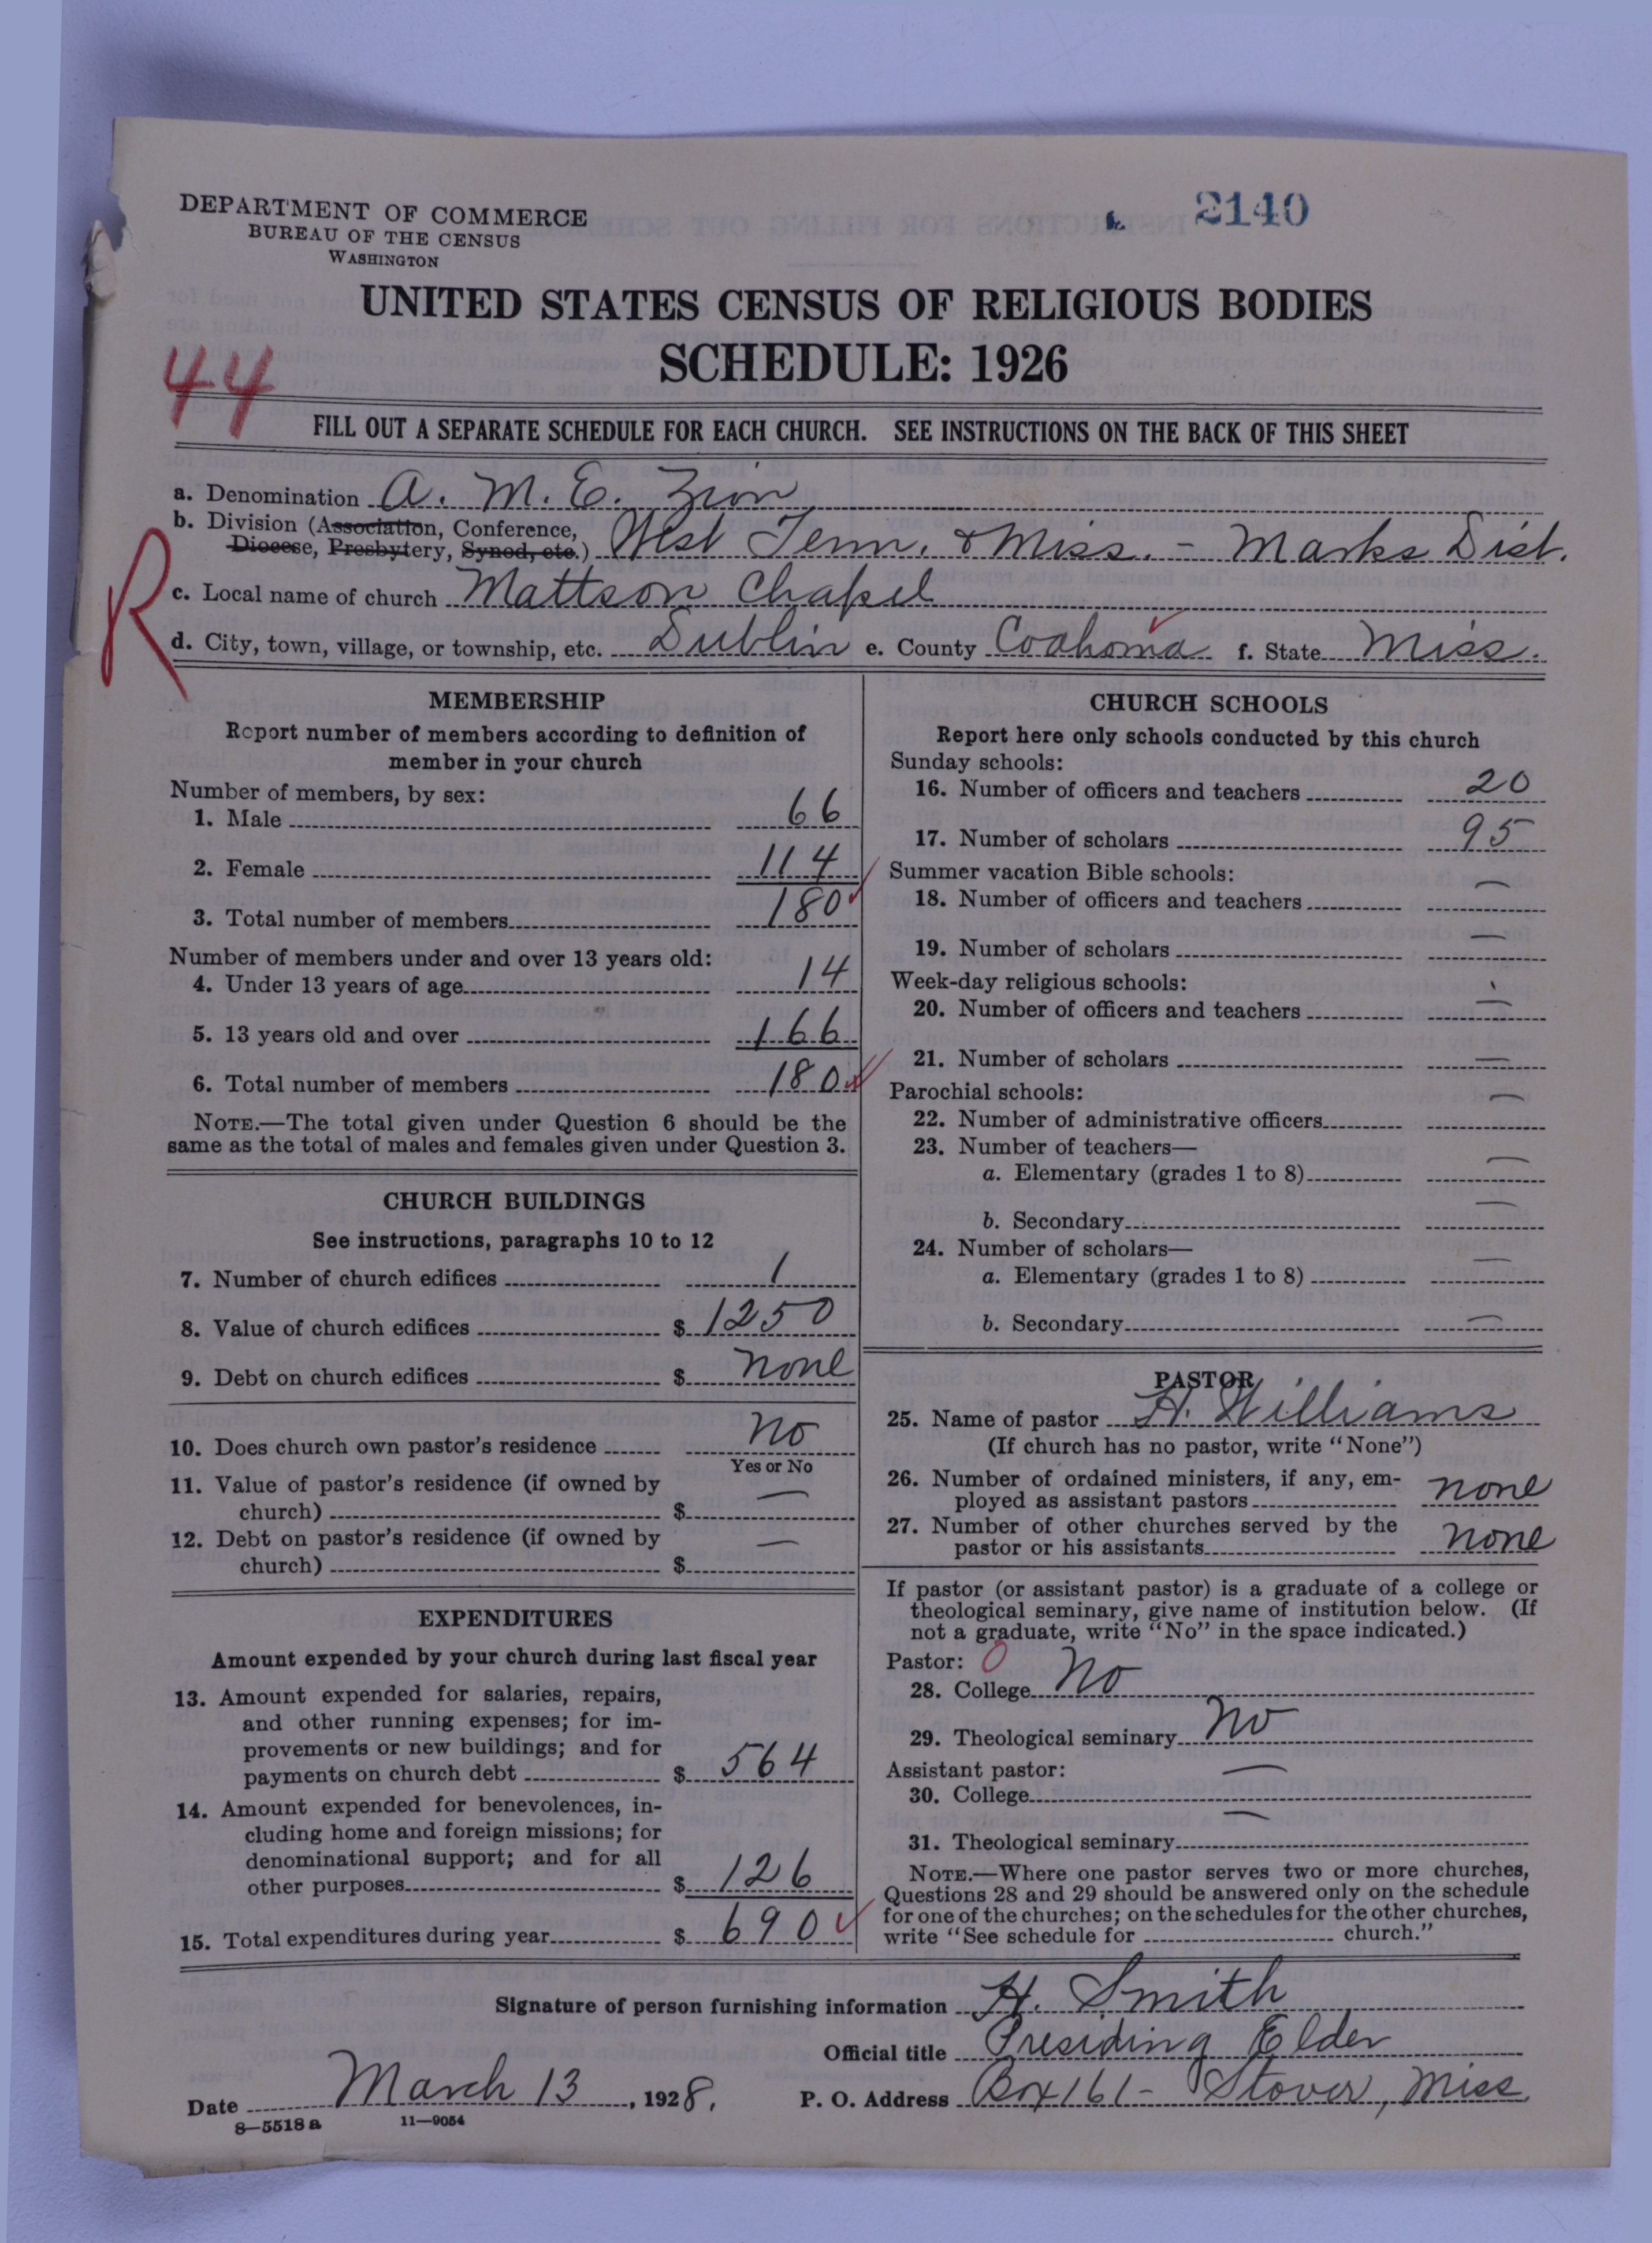 DEPARTMENT OF COMMERCE
BUREAU OF THE CENSUS
WASHINGTON
2140
UNITED STATES CENSUS OF RELIGIOUS BODIES
SCHEDULE: 1926
44
FILL OUT A SEPARATE SCHEDULE FOR EACH CHURCH. SEE INSTRUCTIONS ON THE BACK OF THIS SHEET
a. Denomination A. M. E. Zion
b. Division (Association, Conference,
Diocese, Presbytery, Synod, etc.) West Tenn. & Miss. - Marks Dist.
R
c. Local name of church Mattson Chapel
d. City, town, village, or township, etc. Dublin e. County Coahoma f. State Miss.
MEMBERSHIP
Report number of members according to definition of
member in your church
Number of members, by sex:
1. Male 66
2. Female 114
3. Total number of members 180
Number of members under and over 13 years old:
4. Under 13 years of age 14
5. 13 years old and over 166
6. Total number of members 180
NOTE.—The total given under Question 6 should be the
same as the total of males and females given under Question 3.
CHURCH BUILDINGS
See instructions, paragraphs 10 to 12
7. Number of church edifices 1
8. Value of church edifices $ 1250
9. Debt on church edifices $ none
10. Does church own pastor's residence No
Yes or No
11. Value of pastor's residence (if owned by
church) $ —
12. Debt on pastor's residence (if owned by
church) $ —
EXPENDITURES
Amount expended by your church during last fiscal year
13. Amount expended for salaries, repairs,
and other running expenses; for im-
provements or new buildings; and for
payments on church debt $ 564
14. Amount expended for benevolences, in-
cluding home and foreign missions; for
denominational support; and for all
other purposes $ 126
15. Total expenditures during year $ 690
CHURCH SCHOOLS
Report here only schools conducted by this church
Sunday schools:
16. Number of officers and teachers 20
17. Number of scholars 95
Summer vacation Bible schools:
18. Number of officers and teachers —
19. Number of scholars —
Week-day religious schools:
20. Number of officers and teachers —
21. Number of scholars —
Parochial schools:
22. Number of administrative officers —
23. Number of teachers—
a. Elementary (grades 1 to 8) —
b. Secondary —
24. Number of scholars—
a. Elementary (grades 1 to 8) —
b. Secondary —
PASTOR
25. Name of pastor H. Williams
(If church has no pastor, write "None")
26. Number of ordained ministers, if any, em-
ployed as assistant pastors none
27. Number of other churches served by the
pastor or his assistants none
If pastor (or assistant pastor) is a graduate of a college or
theological seminary, give name of institution below. (If
not a graduate, write "No" in the space indicated.)
Pastor: 0
28. College No
29. Theological seminary No
Assistant pastor:
30. College —
31. Theological seminary —
NOTE.—Where one pastor serves two or more churches,
Questions 28 and 29 should be answered only on the schedule
for one of the churches; on the schedules for the other churches,
write "See schedule for church."
Signature of person furnishing information H. Smith
Official title Presiding Elder
Date March 13, 1928. P. O. Address Box 161 - Stover, Miss.
8—5518 a 11—9054